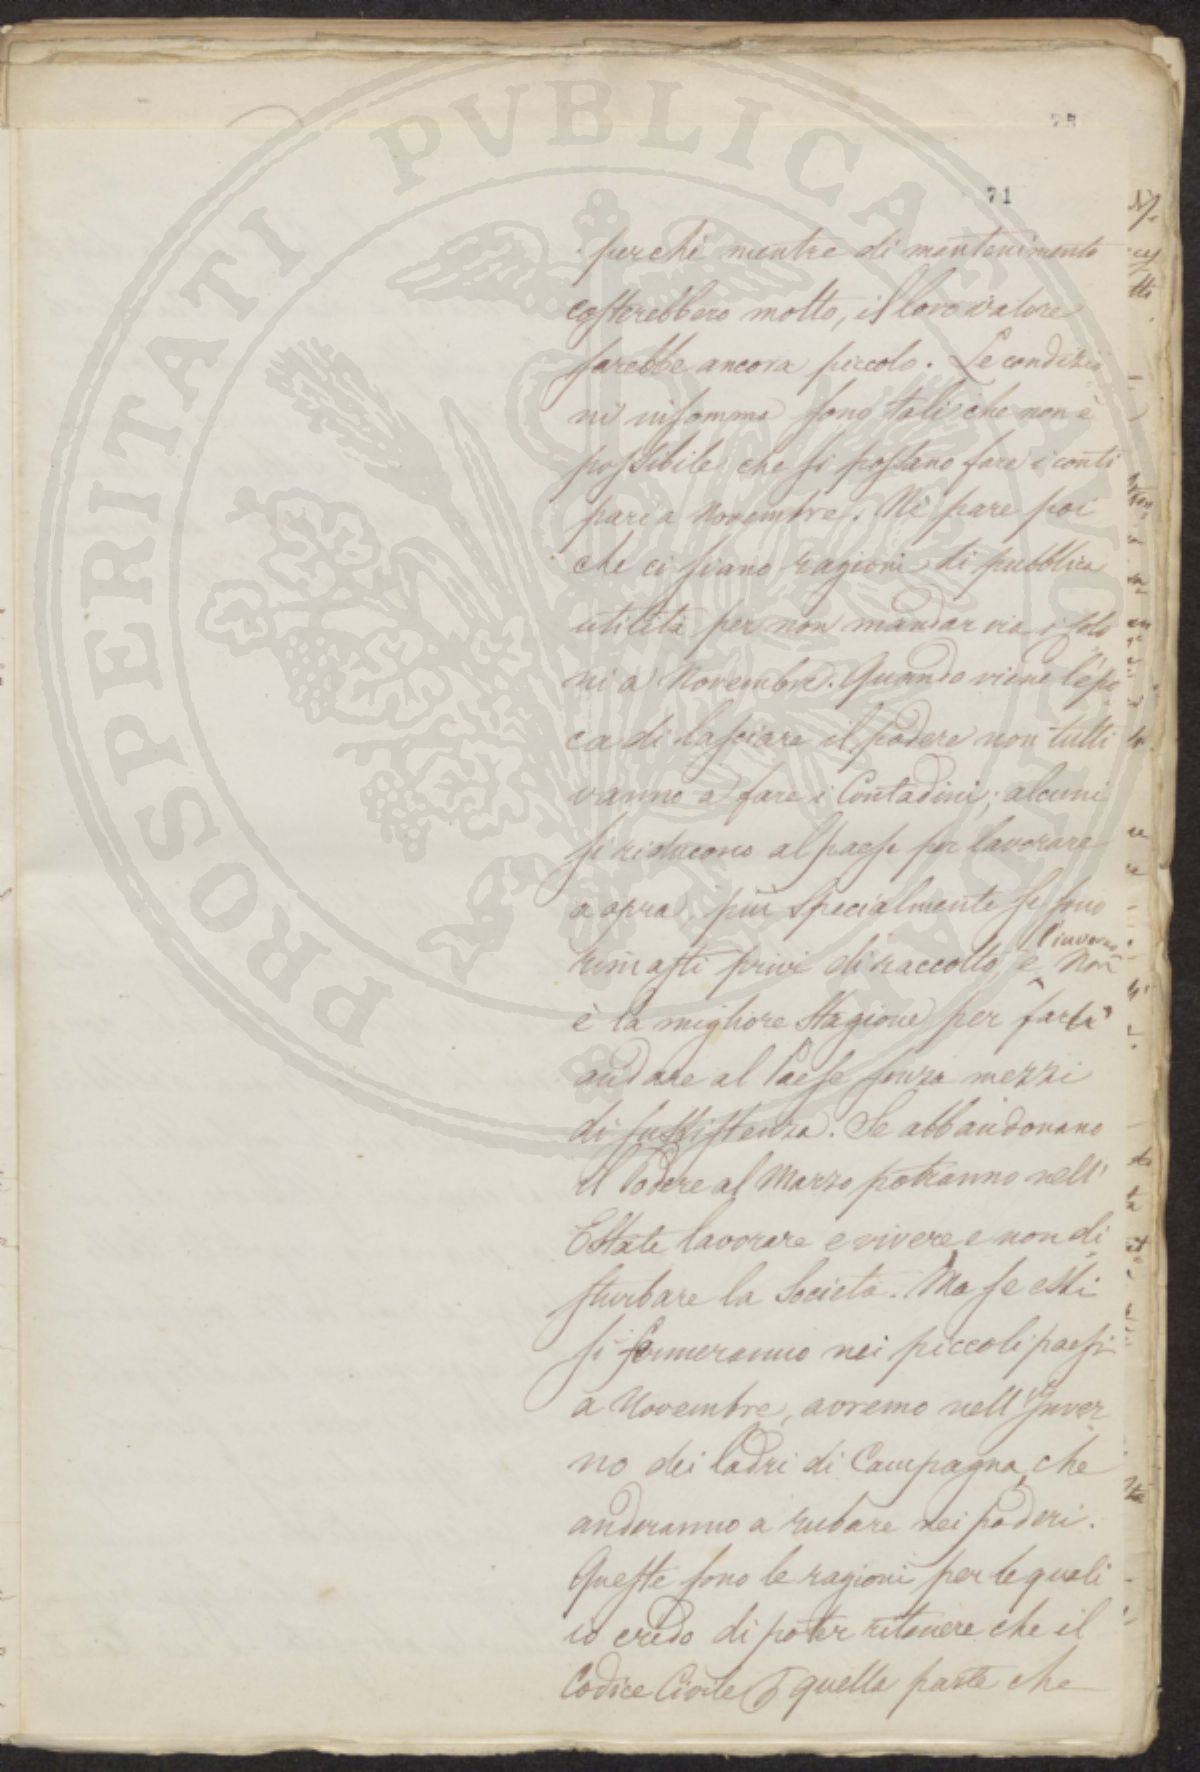 PROSPERITATI PUBLICAE
71
perchè mentre di mantenimento
costerebbero molto, il loro valore
sarebbe ancora piccolo. Le condizio
ni insomma sono tali che non è
possibile che si possano fare i conti
pari a Novembre. Mi pare poi
che ci siano ragioni di pubblica
utilità per non mandar via i Colo
ni a Novembre. Quando viene l'epo
ca di lasciare il podere non tutti
vanno a fare i Contadini; alcuni
si riducono al paese per lavorare
a opra, più specialmente se sono
rimasti privi di raccolto, e l'inverno non
è la migliore Stagione per farli
andare al Paese senza mezzi
di sussistenza. Se abbandonano
il Podere al Marzo potranno nell'
Estate lavorare e vivere e non di
sturbare la Società. Ma se essi
si fermeranno nei piccoli paesi
a Novembre, avremo nell'Inver
no dei ladri di Campagna, che
anderanno a rubare nei poderi.
Queste sono le ragioni per le quali
io credo di poter ritenere che il
Codice Civile quella parte che